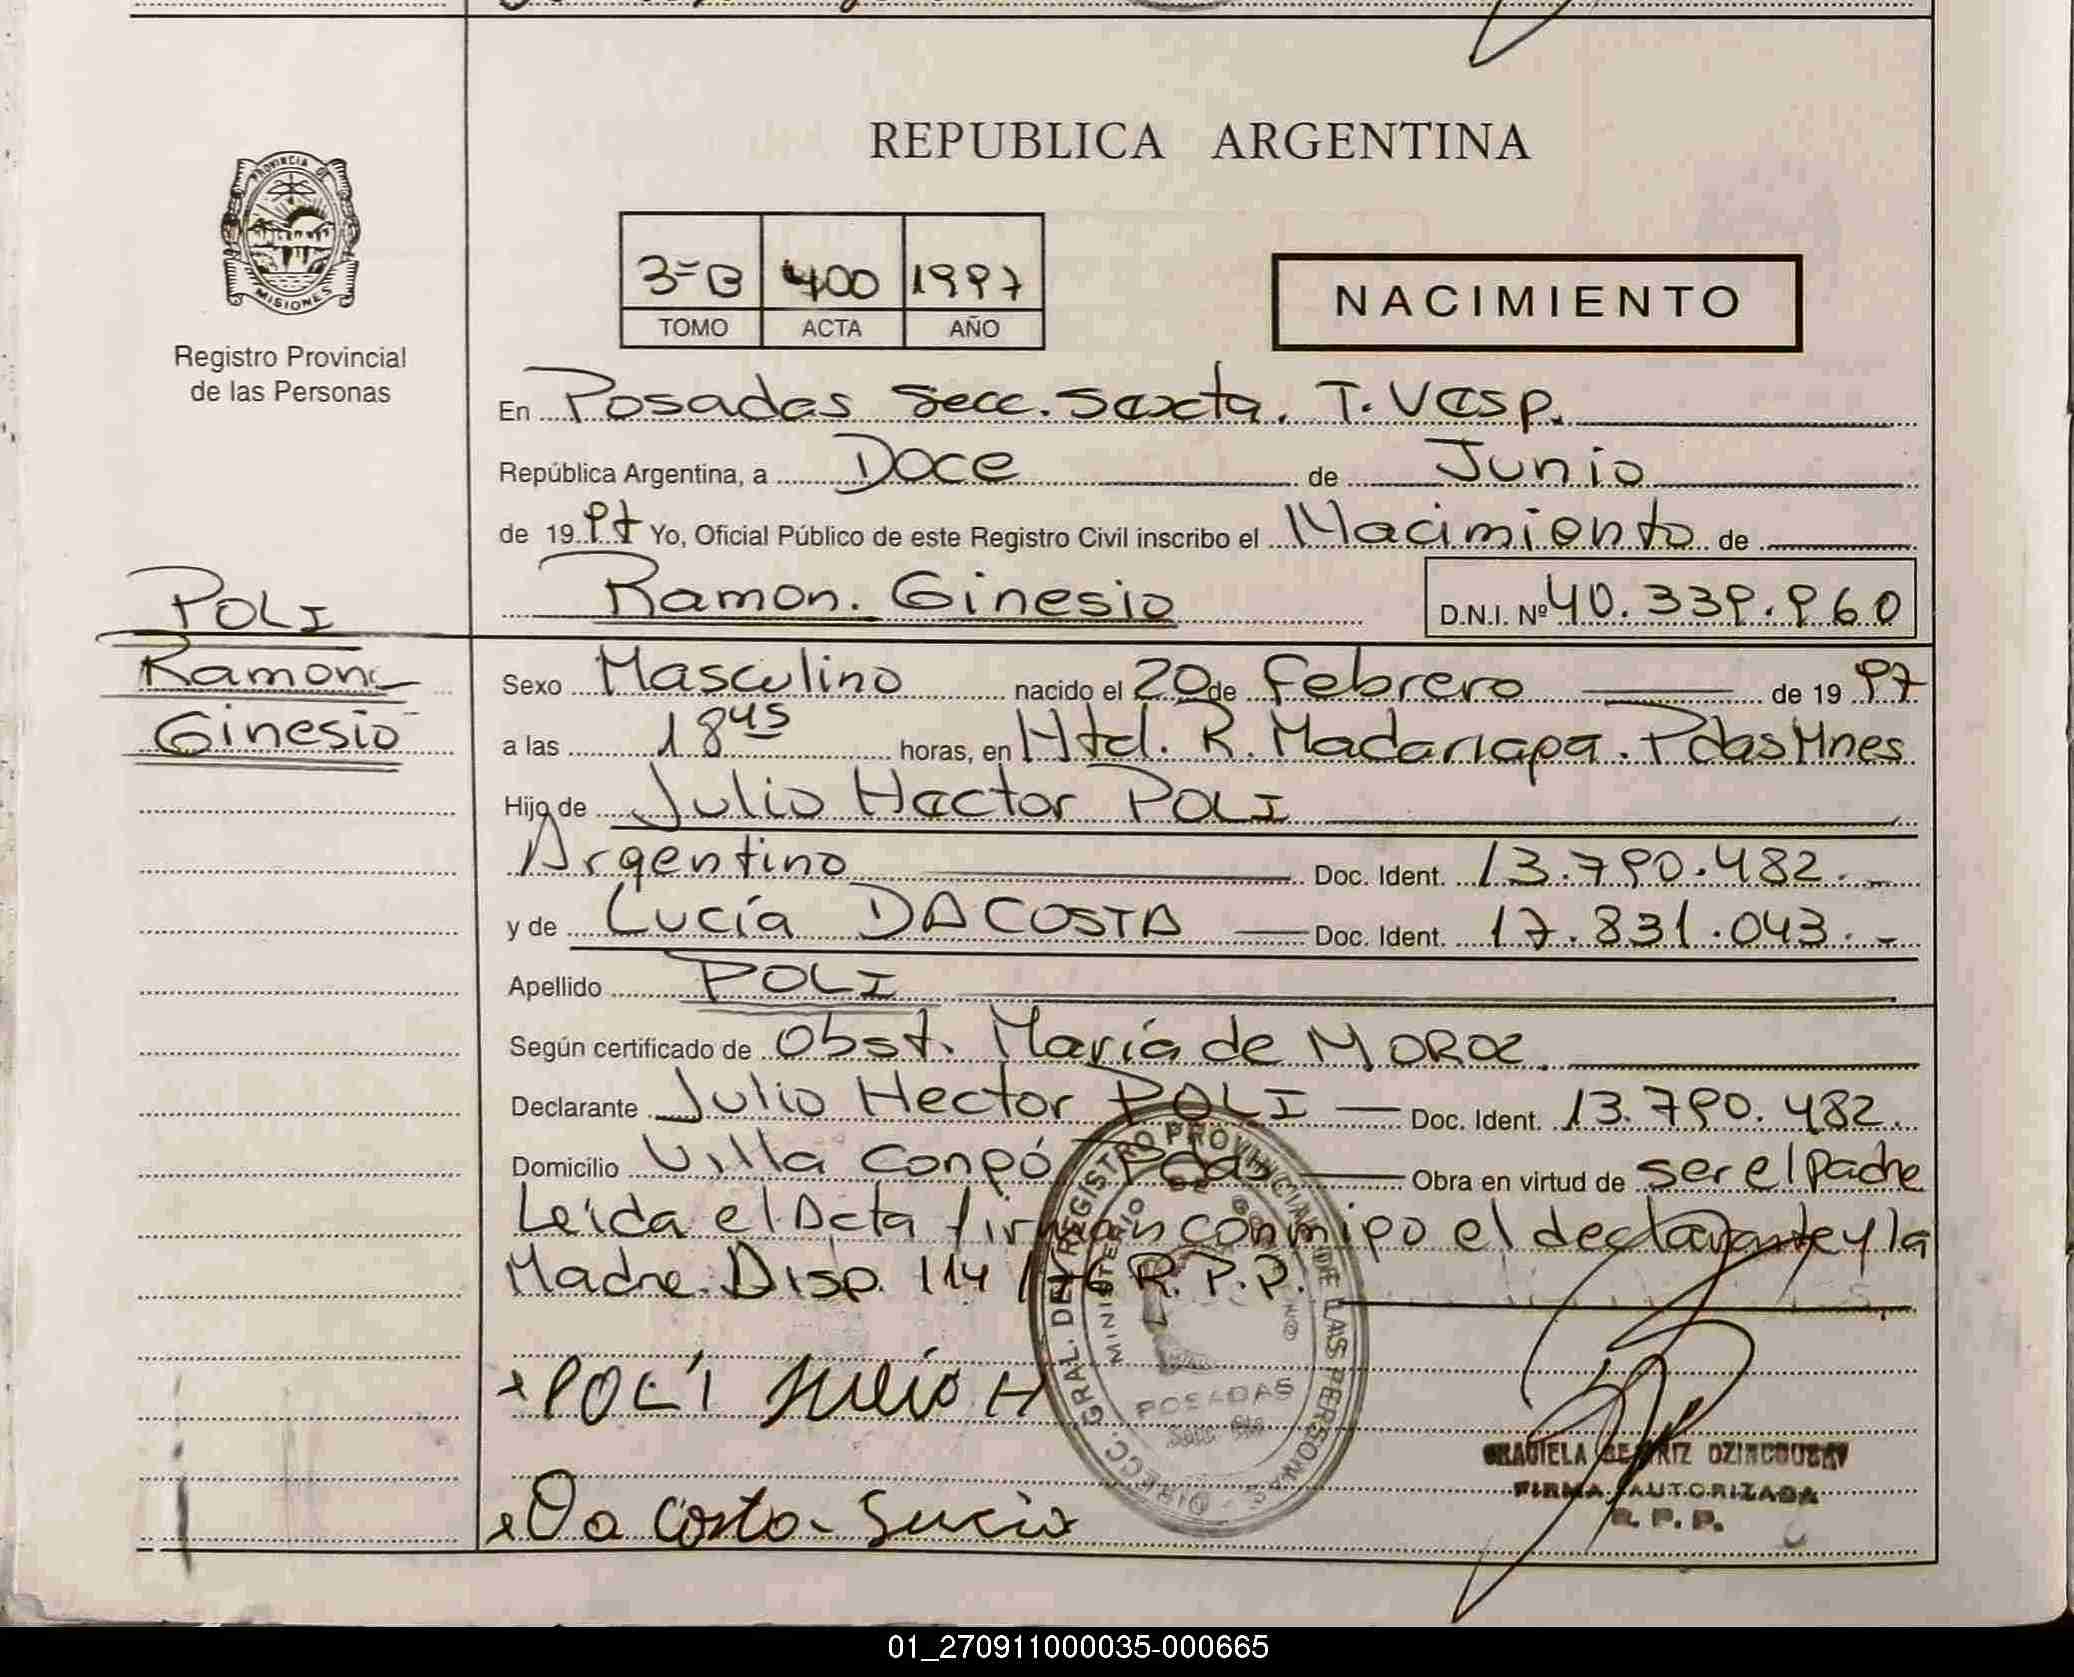 REPUBLICA ARGENTINA
PROVINCIA DE
MISIONES
Registro Provincial
de las Personas
3=B 400 1997
TOMO ACTA AÑO
NACIMIENTO
En Posadas Secc. Sexta. T. Vesp.
República Argentina, a Doce de Junio
de 1997 Yo, Oficial Público de este Registro Civil inscribo el Nacimiento de
Ramon. Ginesio D.N.I. Nº 40.339.960
POLI
Ramon
Ginesio
Sexo Masculino nacido el 20 de Febrero de 19 97
a las 18 45 horas, en Htal. R. Madariaga. Pdas Mnes
Hijo de Julio Hector POLI
Argentino Doc. Ident. 13.790.482.-
y de Lucía DA COSTA Doc. Ident. 17.831.043.-
Apellido POLI
Según certificado de Obst. María de MOROZ
Declarante Julio Hector POLI Doc. Ident. 13.790.482.
Domicilio Villa Pdas Obra en virtud de ser el Padre
Leida el Acta firman conmigo el declarante y la
Madre. Disp. 114/76 R.P.P.
DIRECC. GRAL. DEL REGISTRO PROVINCIAL DE LAS PERSONAS
MINISTERIO DE
POSADAS
x POLI Julio H
x Da Costa Lucia
GRACIELA BEATRIZ
FIRMA AUTORIZADA
R. P. P.
01_270911000035-000665